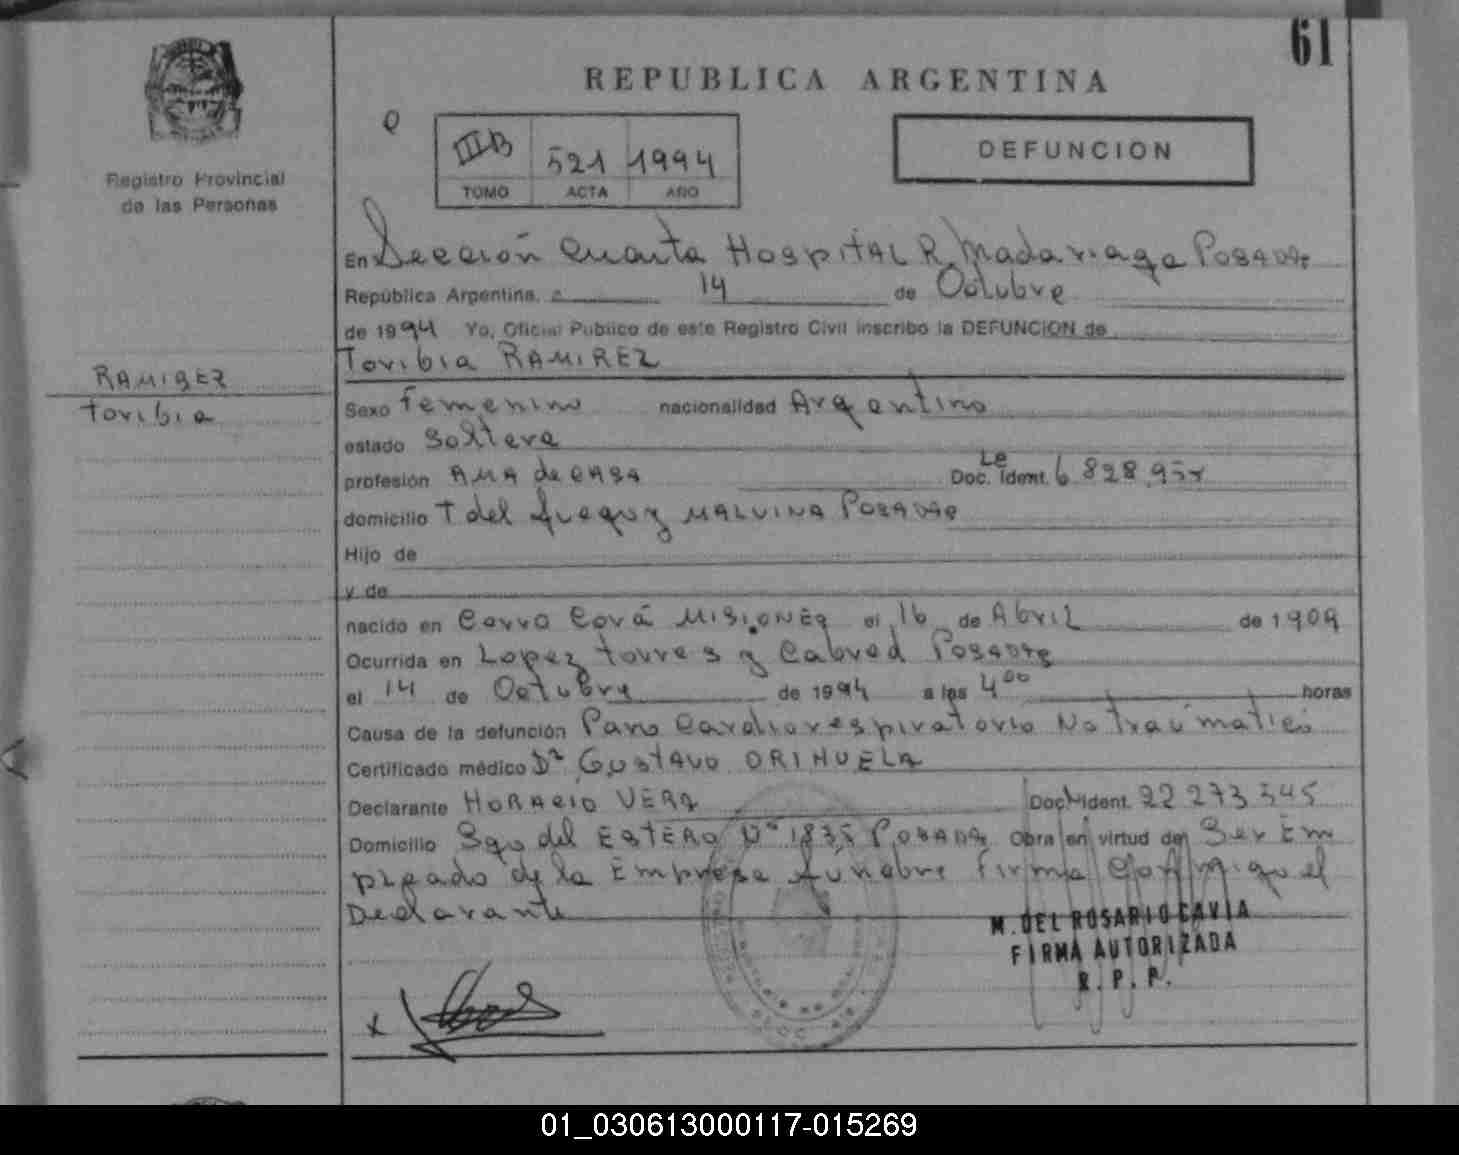 61
REPUBLICA ARGENTINA
Registro Provincial
de las Personas
IIB 521 1994
TOMO ACTA AÑO
DEFUNCION
En Sección Cuarta Hospital R. Madariaga Posadas
República Argentina, a 14 de Octubre
de 1994 Yo, Oficial Público de este Registro Civil inscribo la DEFUNCION de
Toribia RAMIREZ
RAMIREZ
Toribia
Sexo Femenino nacionalidad Argentino
estado Soltera
profesión AMA de CASA Doc. Ident. Le 6 828 95
domicilio T del fuego y MALVINA POSADAS
Hijo de
y de
nacido en Cerro Corá MISIONES el 16 de Abril de 1909
Ocurrida en Lopez torres y Cabred Posadas
el 14 de Octubre de 1994 a las 4 00 horas
Causa de la defunción Paro Cardiorespiratorio No traumatico
Certificado médico Dr GUSTAVO ORIHUELA
Declarante HORACIO VERA Doc. Ident. 22 273 545
Domicilio Sgo del ESTERO Nº 1835 POSADAS Obra en virtud de Ser Em
pleado de la Empresa fúnebre Firma el
Declarante
M. DEL ROSARIO CAVIA
FIRMA AUTORIZADA
R. P. P.
x
01_030613000117-015269